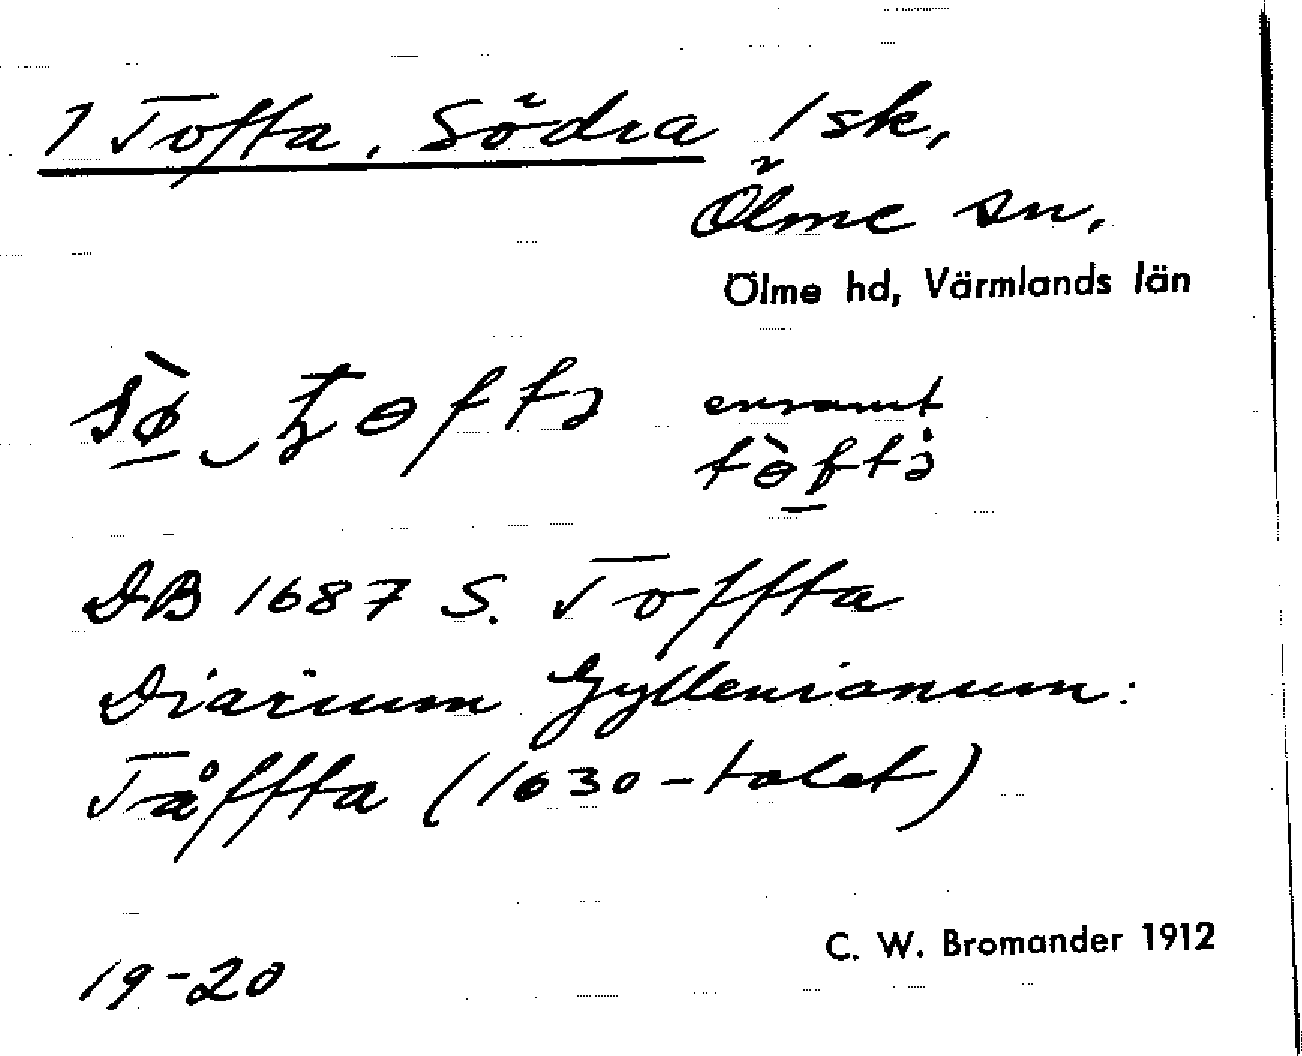 1 Tofta, Södra 1 sk,
Ölme sn.
Ölme hd, Värmlands län
ensamt
DB 1687 S. Toffta
Diarium Gyllenianum:
Tåffta (1630-talet)
C. W. Bromander 1912
19-20